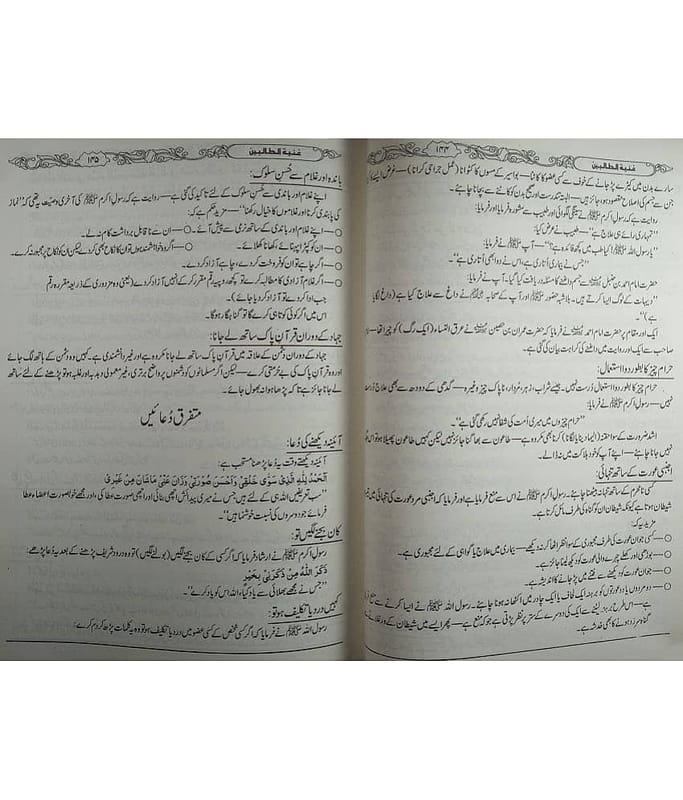 غنیۃ الطالبین
۱۴۴
سارے بدن میں کیڑے پڑ جانے کے خوف سے کسی عضو کا کاٹنا — بواسیر کے مسوں کا کٹوانا (عمل جراحی کرانا) — غرض
جن سے جسم کی اصلاح مقصود ہو جائز ہیں — البتہ تندرست اور صحیح بدن کو کاٹنے سے بچانا چاہئے۔
روایت ہے کہ رسول اکرم ﷺ نے دو طبیب سے مشورہ فرمایا اور فرمایا:
"تمہاری رائے ہی علاج ہے" — طبیب نے عرض کیا:
"یا رسول اللہ ﷺ! کیا طب میں کچھ فائدہ ہے؟" — آپ ﷺ نے فرمایا:
"جس نے بیماری اُتاری ہے، اس نے دوا بھی اُتاری ہے"۔
حضرت امام احمد بن حنبل سے جسم داغنے کا مسئلہ دریافت کیا گیا۔ آپ نے فرمایا:
"دیہات کے لوگ ایسا کرتے ہیں۔ بلاشبہ حضور ﷺ اور آپ کے صحابہ نے داغ سے علاج کیا ہے (داغ لگایا
ہے)"۔
ایک اور مقام پر حضرت امام احمد نے فرمایا کہ حضرت عمران بن حصین نے عرق النساء (ایک رگ) کو چیرا تھا
صاحب سے ایک اور روایت میں داغنے کی کراہت بیان کی گئی ہے۔
حرام چیز کا بطور دوا استعمال:
حرام چیز کا بطور دوا استعمال درست نہیں۔ جیسے شراب، زہر، مردار، ناپاک چیز وغیرہ — گدھی کے دودھ سے بھی علاج درست
نہیں — رسول اکرم ﷺ نے فرمایا:
"حرام چیزوں میں میری اُمت کی شفا نہیں رکھی گئی ہے"
اشد ضرورت کے سوا حقنہ (انیما، پناہ لگانا) کرنا بھی مکروہ ہے — طاعون سے بھاگنا جائز نہیں لیکن کہیں طاعون پھیلا ہو تو اس
نہیں جانا چاہئے — اپنے آپ کو خود ہلاکت میں نہ ڈالے۔
اجنبی عورت کے ساتھ تنہائی:
کسی نامحرم کے ساتھ تنہا نہ بیٹھنا چاہئے۔ رسول اکرم ﷺ نے اس سے منع فرمایا ہے اور فرمایا کہ اجنبی مرد و عورت کی تنہائی میں تیسرا
شیطان ہوتا ہے کیونکہ شیطان ان کو گناہ کی طرف مائل کرتا ہے۔
مزید یہ کہ:
○ — کسی جوان عورت کی طرف مجبوری کے سوا نظر اٹھا کر نہ دیکھے — بیماری میں علاج یا گواہی کے لئے مجبوری ہے۔
○ — بوڑھی اور کھلے چہرے والی عورت کو دیکھ لینا جائز ہے۔
○ — جوان عورت کو دیکھنے سے فتنے میں پڑ جانے کا اندیشہ ہے۔
○ — دو مردوں یا دو عورتوں کو برہنہ ایک لحاف یا ایک چادر میں اکٹھا نہ ہونا چاہئے۔ رسول اللہ ﷺ نے ایسا کرنے سے منع فرمایا
ہے — اس طرح برہنہ لیٹنے سے ایک کی دوسرے کے ستر پر نظر پڑتی ہے جو کہ منع ہے — پھر ایسے میں شیطان کے ورغلانے
گناہ سرزد ہونے کا بھی خدشہ ہے۔
غنیۃ الطالبین
۱۴۵
باندہ اور غلام سے حُسنِ سلوک:
اپنے غلام اور باندی سے حُسنِ سلوک کے لئے تاکید کی گئی ہے — روایت ہے کہ رسول اکرم ﷺ کی آخری وصیت یہ تھی کہ "نماز
کی پابندی کرنا اور غلاموں کا خیال رکھنا" — مزید حکم ہے کہ:
○ — اپنے غلام اور باندی کے ساتھ نرمی سے پیش آئے۔ ○ — ان سے ناقابل برداشت کام نہ لے۔
○ — ان کو کپڑا پہنائے، کھانا کھلائے۔ ○ — اگر وہ خواہشمند ہوں تو ان کا نکاح بھی کر دے لیکن ان کو نکاح پر مجبور نہ کرے۔
○ — اگر چاہے تو ان کو فروخت کر دے، چاہے آزاد کر دے۔
○ — اگر غلام آزادی کا مطالبہ کرے تو کچھ روپیہ رقم مقرر کر کے انہیں آزاد کر دے (یعنی وہ مزدوری کے ذریعہ مقررہ رقم
جب ادا کر دے تو آزاد کر دیا جائے)۔
اس میں اگر کوئی کوتاہی کرے گا تو گناہگار ہوگا۔
جہاد کے دوران قرآنِ پاک ساتھ لے جانا:
جہاد کے دوران دشمن کے علاقہ میں قرآن پاک ساتھ لے جانا مکروہ ہے اور غیر دانشمندی ہے۔ کہیں وہ دشمن کے ہاتھ لگ جائے
اور وہ قرآن پاک کی بے حرمتی کرے — لیکن اگر مسلمانوں کو دشمنوں پر واضح برتری، غیر معمولی دبدبہ اور غلبہ ہو تو پڑھنے کے لئے ساتھ
لے جانا جائز ہے تاکہ پڑھا ہوا نہ بھول جائے۔
متفرق دُعائیں
آئینہ دیکھنے کی دُعا:
آئینہ دیکھتے وقت یہ دُعا پڑھنا مستحب ہے:
اَلْحَمْدُ لِلّٰهِ الَّذِیْ سَوّٰی خَلْقِیْ وَاَحْسَنَ صُوْرَتِیْ وَزَانَ مِنِّیْ مَا شَانَ مِنْ غَیْرِیْ
"سب تعریفیں اللہ ہی کے لئے ہیں جس نے میری پیدائش اچھی بنائی اور اچھی صورت عطا کی، اور مجھے خوبصورت اعضاء عطا
فرمائے جو دوسروں کی نسبت خوشنما ہیں"۔
کان بجنے لگیں تو:
رسول اکرم ﷺ نے ارشاد فرمایا کہ اگر کسی کے کان بجنے لگیں (بولنے لگیں) تو وہ درود شریف پڑھنے کے بعد یہ دُعا پڑھے:
ذَکَرَ اللّٰهُ مِنْ ذَکَرَنِیْ بِخَیْرٍ
"جس نے مجھے بھلائی سے یاد کیا، اللہ اس کو یاد کرے"۔
کہیں درد یا تکلیف ہو تو:
رسول اللہ ﷺ نے فرمایا کہ اگر کسی شخص کے کسی عضو میں درد یا تکلیف ہو تو وہ یہ کلمات پڑھ کر دم کرے: